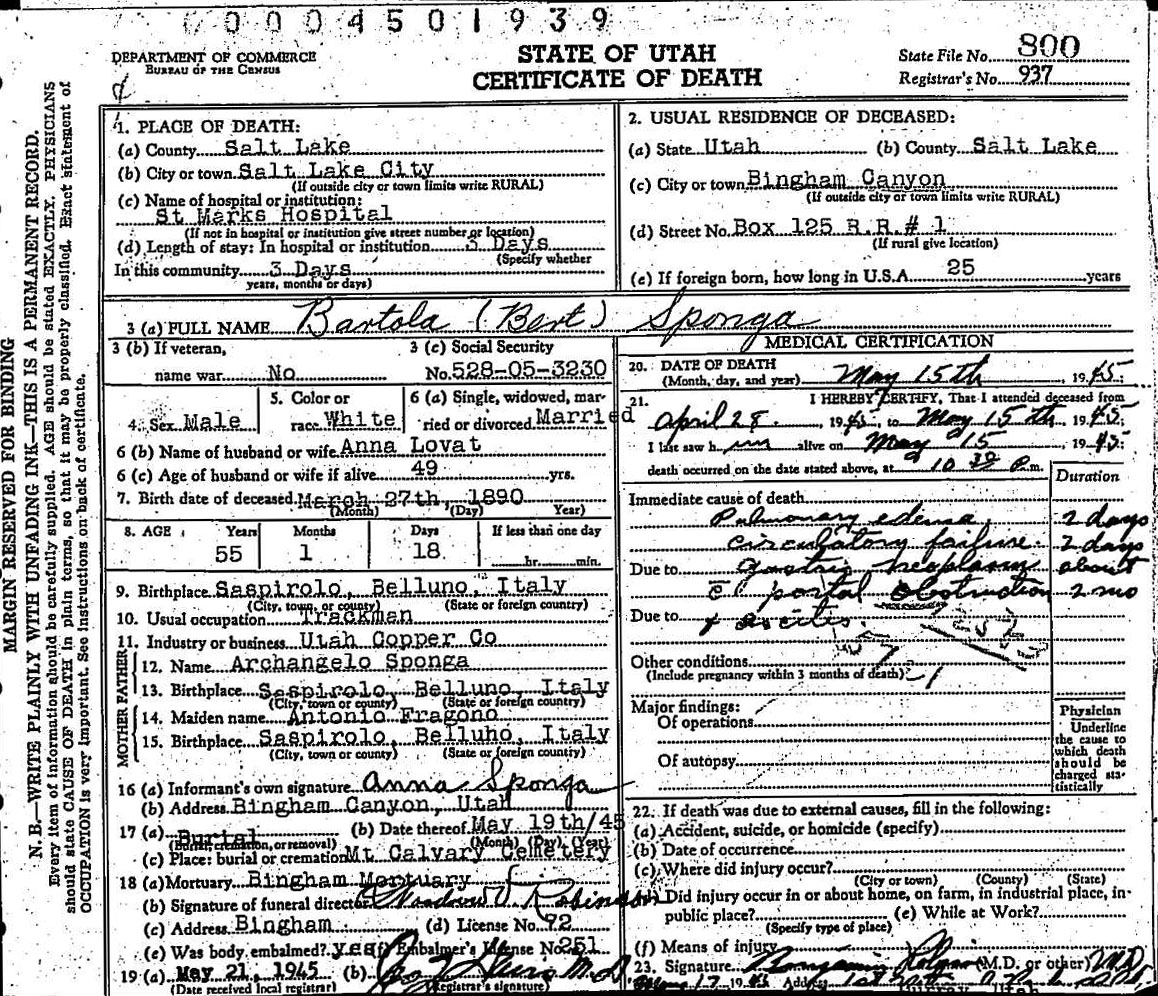 0004501939
DEPARTMENT OF COMMERCE
BUREAU OF THE CENSUS
STATE OF UTAH
CERTIFICATE OF DEATH
State File No. 800
Registrar's No. 937
MARGIN RESERVED FOR BINDING
N. B.—WRITE PLAINLY WITH UNFADING INK—THIS IS A PERMANENT RECORD.
Every item of information should be carefully supplied. AGE should be stated EXACTLY. PHYSICIANS
should state CAUSE OF DEATH in plain terms, so that it may be properly classified. Exact statement of
OCCUPATION is very important. See instructions on back of certificate.
1. PLACE OF DEATH:
(a) County Salt Lake
(b) City or town Salt Lake City
(If outside city or town limits write RURAL)
(c) Name of hospital or institution:
St Marks Hospital
(If not in hospital or institution give street number or location)
(d) Length of stay: In hospital or institution 3 Days
(Specify whether
In this community 3 Days
years, months or days)
2. USUAL RESIDENCE OF DECEASED:
(a) State Utah (b) County Salt Lake
(c) City or town Bingham Canyon
(If outside city or town limits write RURAL)
(d) Street No. Box 125 R.R.# 1
(If rural give location)
(e) If foreign born, how long in U.S.A. 25 years
3 (a) FULL NAME Bartola (Bert) Sponga
3 (b) If veteran,
name war No
3 (c) Social Security
No. 528-05-3230
4. Sex Male
5. Color or
race White
6 (a) Single, widowed, mar-
ried or divorced Married
6 (b) Name of husband or wife Anna Lovat
6 (c) Age of husband or wife if alive 49 yrs.
7. Birth date of deceased March 27th, 1890
(Month) (Day) Year)
8. AGE Years Months Days If less than one day
55 1 18 hr. min.
9. Birthplace Saspirolo, Belluno, Italy
(City, town, or county) (State or foreign country)
10. Usual occupation Trackman
11. Industry or business Utah Copper Co
FATHER
12. Name Archangelo Sponga
13. Birthplace Saspirolo, Belluno, Italy
(City, town or county) (State or foreign country)
MOTHER
14. Maiden name Antonio Fragono
15. Birthplace Saspirolo, Belluno, Italy
(City, town or county) (State or foreign country)
16 (a) Informant's own signature Anna Sponga
(b) Address Bingham Canyon, Utah
17 (a) Burial (b) Date thereof May 19th/45
(Burial, cremation, or removal) (Month) (Day) (Year)
(c) Place: burial or cremation Mt Calvary Cemetery
18 (a) Mortuary Bingham Mortuary
(b) Signature of funeral director Robinson
(c) Address Bingham (d) License No. 92
(e) Was body embalmed? yes (f) Embalmer's License No. 251
19 (a) May 21, 1945 (b) M.D.
(Date received local registrar) Registrar's signature)
MEDICAL CERTIFICATION
20. DATE OF DEATH
(Month, day, and year) May 15th, 1945;
21. I HEREBY CERTIFY, That I attended deceased from
April 28, 1945, to May 15th, 1945.
I last saw him alive on May 15 1945;
death occurred on the date stated above, at 10 30 P.m.
Duration
Immediate cause of death
Pulmonary edema 2 days
circulatory failure 2 days
Due to gastric neoplasm about
c̄ portal obstruction 2 mo
Due to & ascites
Other conditions
(Include pregnancy within 3 months of death)
Major findings:
Of operations
Of autopsy
Physician
Underline
the cause to
which death
should be
charged sta-
tistically
22. If death was due to external causes, fill in the following:
(a) Accident, suicide, or homicide (specify)
(b) Date of occurrence
(c) Where did injury occur?
(City or town) (County) (State)
Did injury occur in or about home, on farm, in industrial place, in-
public place? (e) While at Work?
(Specify type of place)
(f) Means of injury
23. Signature Benjamin (M.D. or other) M.D.
Address